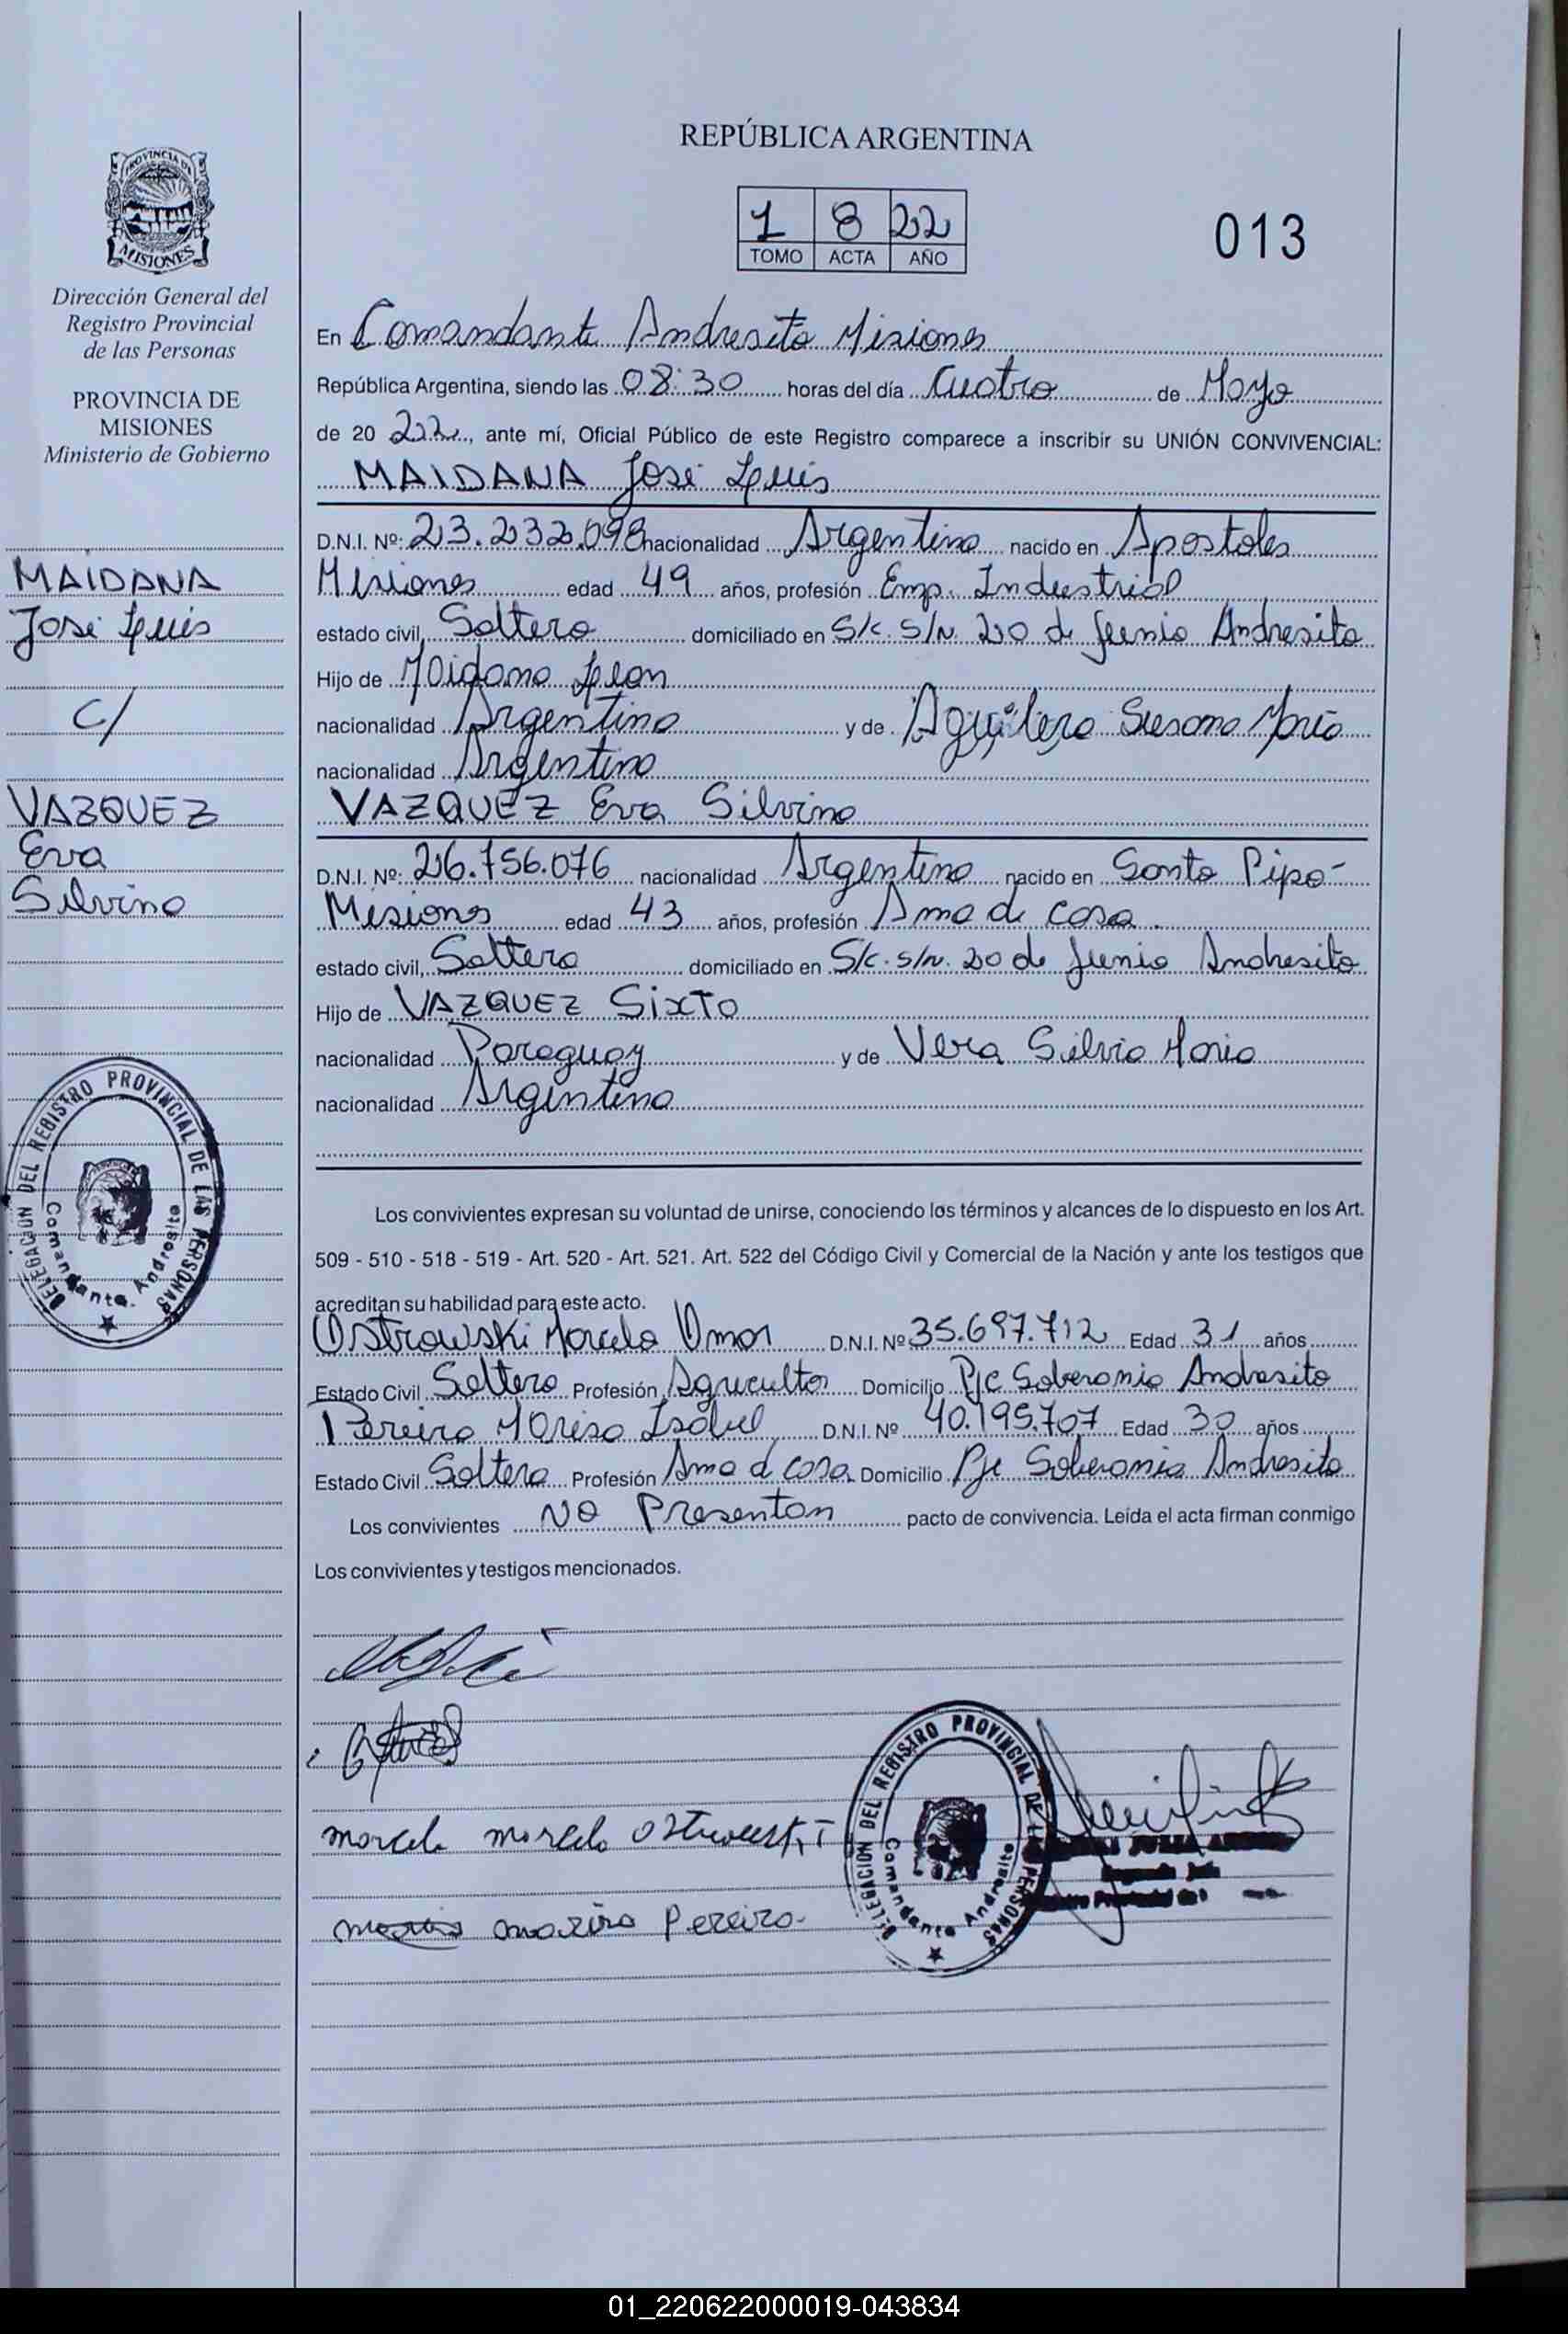 PROVINCIA DE
MISIONES
Dirección General del
Registro Provincial
de las Personas
PROVINCIA DE
MISIONES
Ministerio de Gobierno
MAIDANA
José Luis
C/
VAZQUEZ
Eva
Silvina
DELEGACION DEL REGISTRO PROVINCIAL DE LAS PERSONAS
Comandante Andresito
REPÚBLICA ARGENTINA
1 8 22
TOMO ACTA AÑO
013
En Comandante Andresito Misiones
República Argentina, siendo las 08:30 horas del día Cuatro de Mayo
de 20 22, ante mí, Oficial Público de este Registro comparece a inscribir su UNIÓN CONVIVENCIAL:
MAIDANA José Luis
D.N.I. Nº: 23.232.098 nacionalidad Argentino nacido en Apostoles
Misiones edad 49 años, profesión Emp. Industrial
estado civil, Soltero domiciliado en S/c. S/N. 20 de Junio Andresito
Hijo de Maidana Leon
nacionalidad Argentino y de Aguilera Susana María
nacionalidad Argentina
VAZQUEZ Eva Silvina
D.N.I. Nº: 26.756.076 nacionalidad Argentina nacido en Santo Pipo-
Misiones edad 43 años, profesión Ama de casa.
estado civil, Soltera domiciliado en S/c. s/N. 20 de Junio Andresito
Hijo de VAZQUEZ Sixto
nacionalidad Paraguay y de Vera Silvia Maria
nacionalidad Argentina
Los convivientes expresan su voluntad de unirse, conociendo los términos y alcances de lo dispuesto en los Art.
509 - 510 - 518 - 519 - Art. 520 - Art. 521. Art. 522 del Código Civil y Comercial de la Nación y ante los testigos que
acreditan su habilidad para este acto.
Ostrowski Marcelo Omar D.N.I. Nº 35.697.712 Edad 31 años
Estado Civil Soltero Profesión Agricultor Domicilio Pje Soberania Andresito
Pereira Marisa Isabel D.N.I. Nº 40.195.707 Edad 30 años
Estado Civil Soltera Profesión Ama d casa. Domicilio Pje Soberania Andresito
Los convivientes No Presentan pacto de convivencia. Leída el acta firman conmigo
Los convivientes y testigos mencionados.
marcelo Ostrowski
marisa Pereira
DELEGACION DEL REGISTRO PROVINCIAL DE PERSONAS
Comandante Andresito
01_220622000019-043834